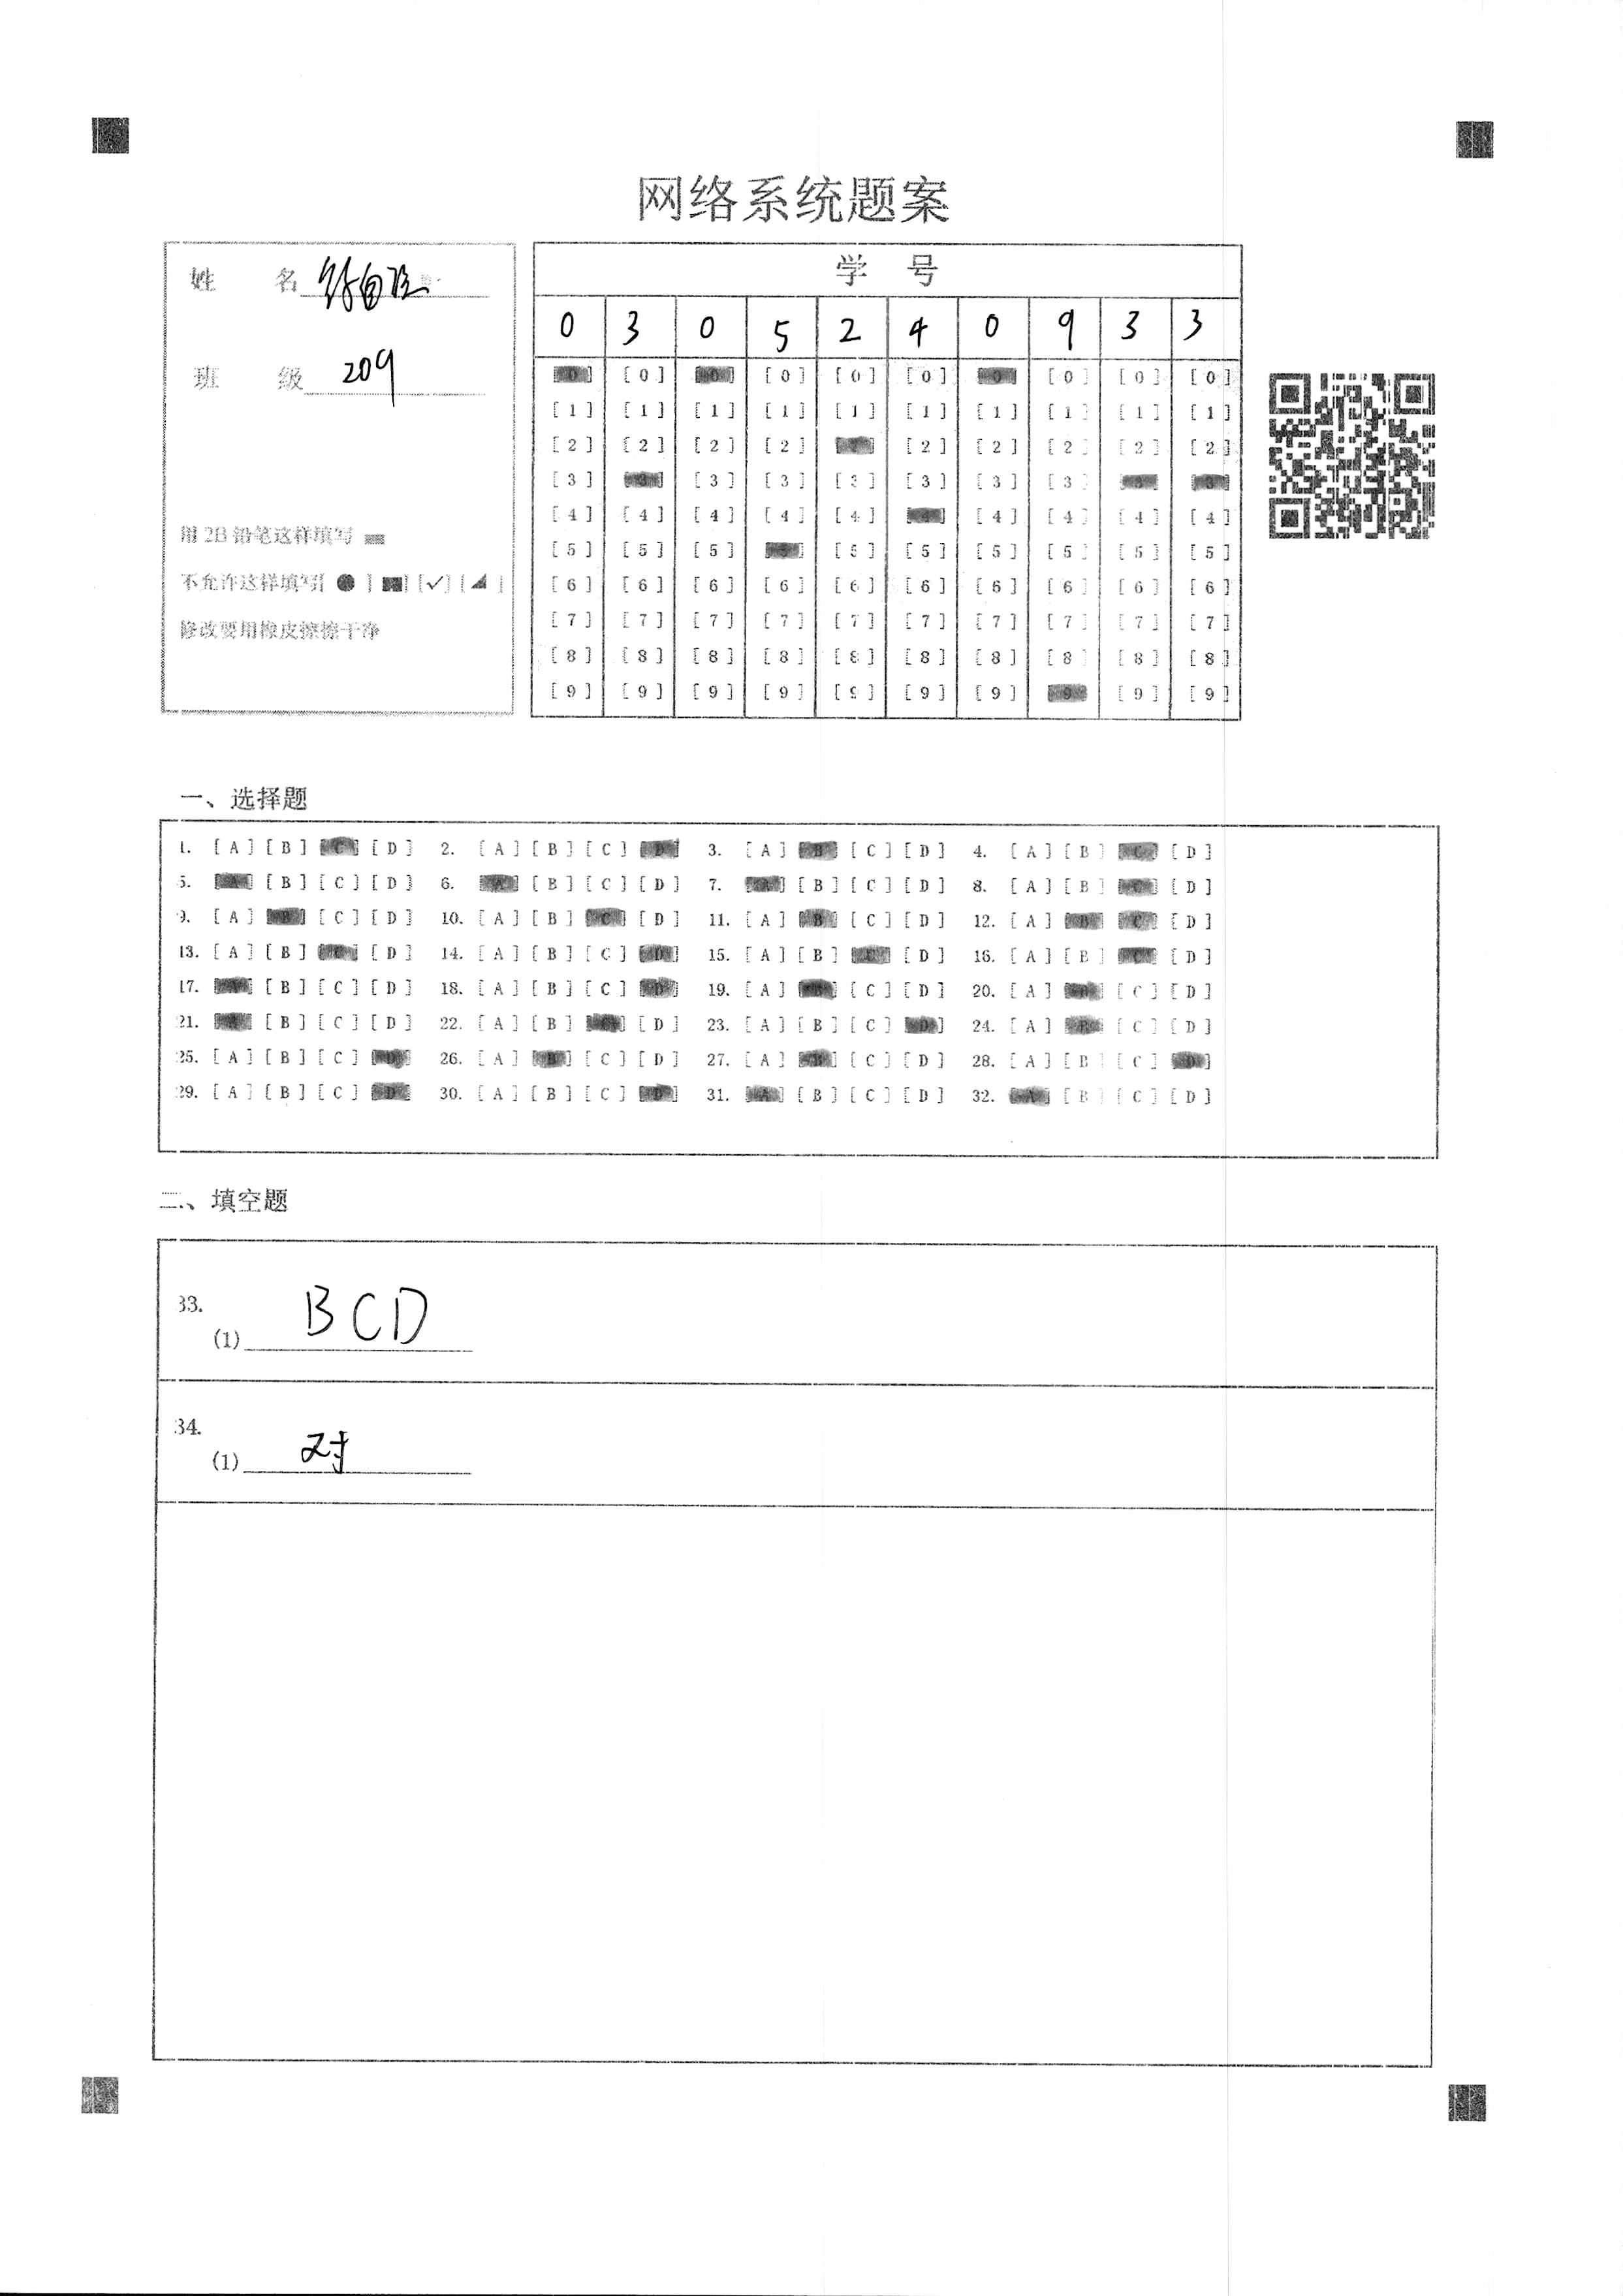 网络系统题案
姓 名
班 级 209
用 2B 铅笔这样填写
不允许这样填写[ ● ] [■] [✓] [◢ ]
修改要用橡皮擦擦干净
学 号
0 3 0 5 2 4 0 9 3 3
[0] [0] [0] [0] [0] [0] [0] [0] [0] [0]
[1] [1] [1] [1] [1] [1] [1] [1] [1] [1]
[2] [2] [2] [2] [2] [2] [2] [2] [2] [2]
[3] [3] [3] [3] [3] [3] [3] [3] [3] [3]
[4] [4] [4] [4] [4] [4] [4] [4] [4] [4]
[5] [5] [5] [5] [5] [5] [5] [5] [5] [5]
[6] [6] [6] [6] [6] [6] [6] [6] [6] [6]
[7] [7] [7] [7] [7] [7] [7] [7] [7] [7]
[8] [8] [8] [8] [8] [8] [8] [8] [8] [8]
[9] [9] [9] [9] [9] [9] [9] [9] [9] [9]
一、选择题
1. [A] [B] [C] [D] 2. [A] [B] [C] [D] 3. [A] [B] [C] [D] 4. [A] [B] [C] [D]
5. [A] [B] [C] [D] 6. [A] [B] [C] [D] 7. [A] [B] [C] [D] 8. [A] [B] [C] [D]
9. [A] [B] [C] [D] 10. [A] [B] [C] [D] 11. [A] [B] [C] [D] 12. [A] [B] [C] [D]
13. [A] [B] [C] [D] 14. [A] [B] [C] [D] 15. [A] [B] [C] [D] 16. [A] [B] [C] [D]
17. [A] [B] [C] [D] 18. [A] [B] [C] [D] 19. [A] [B] [C] [D] 20. [A] [B] [C] [D]
21. [A] [B] [C] [D] 22. [A] [B] [C] [D] 23. [A] [B] [C] [D] 24. [A] [B] [C] [D]
25. [A] [B] [C] [D] 26. [A] [B] [C] [D] 27. [A] [B] [C] [D] 28. [A] [B] [C] [D]
29. [A] [B] [C] [D] 30. [A] [B] [C] [D] 31. [A] [B] [C] [D] 32. [A] [B] [C] [D]
二、填空题
33.
(1) BCD
34.
(1) 对